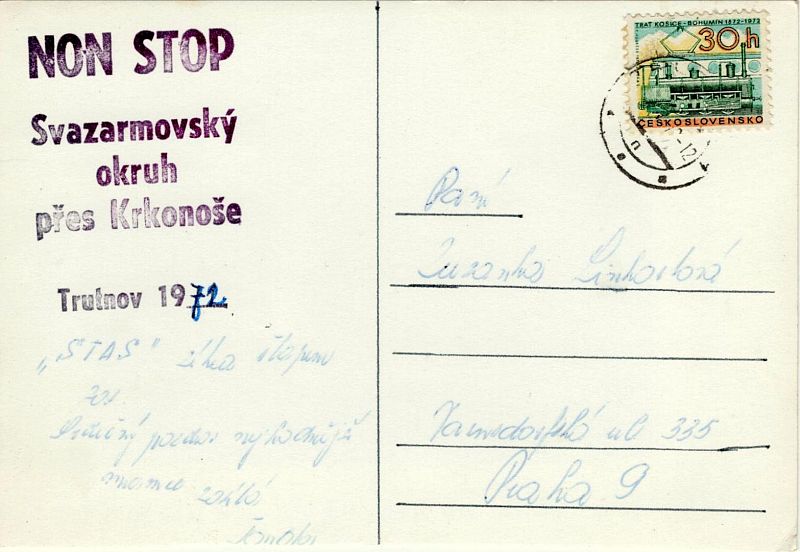 NON STOP
Svazarmovský
okruh
přes Krkonoše
Trutnov 1972
"STAS"
Srdečný pozdrav
TRAŤ KOŠICE - BOHUMÍN 1872-1972
30 h
ČESKOSLOVENSKO
Paní
Zuzanka Linhartová
Varnsdorfská ul 335
Praha 9